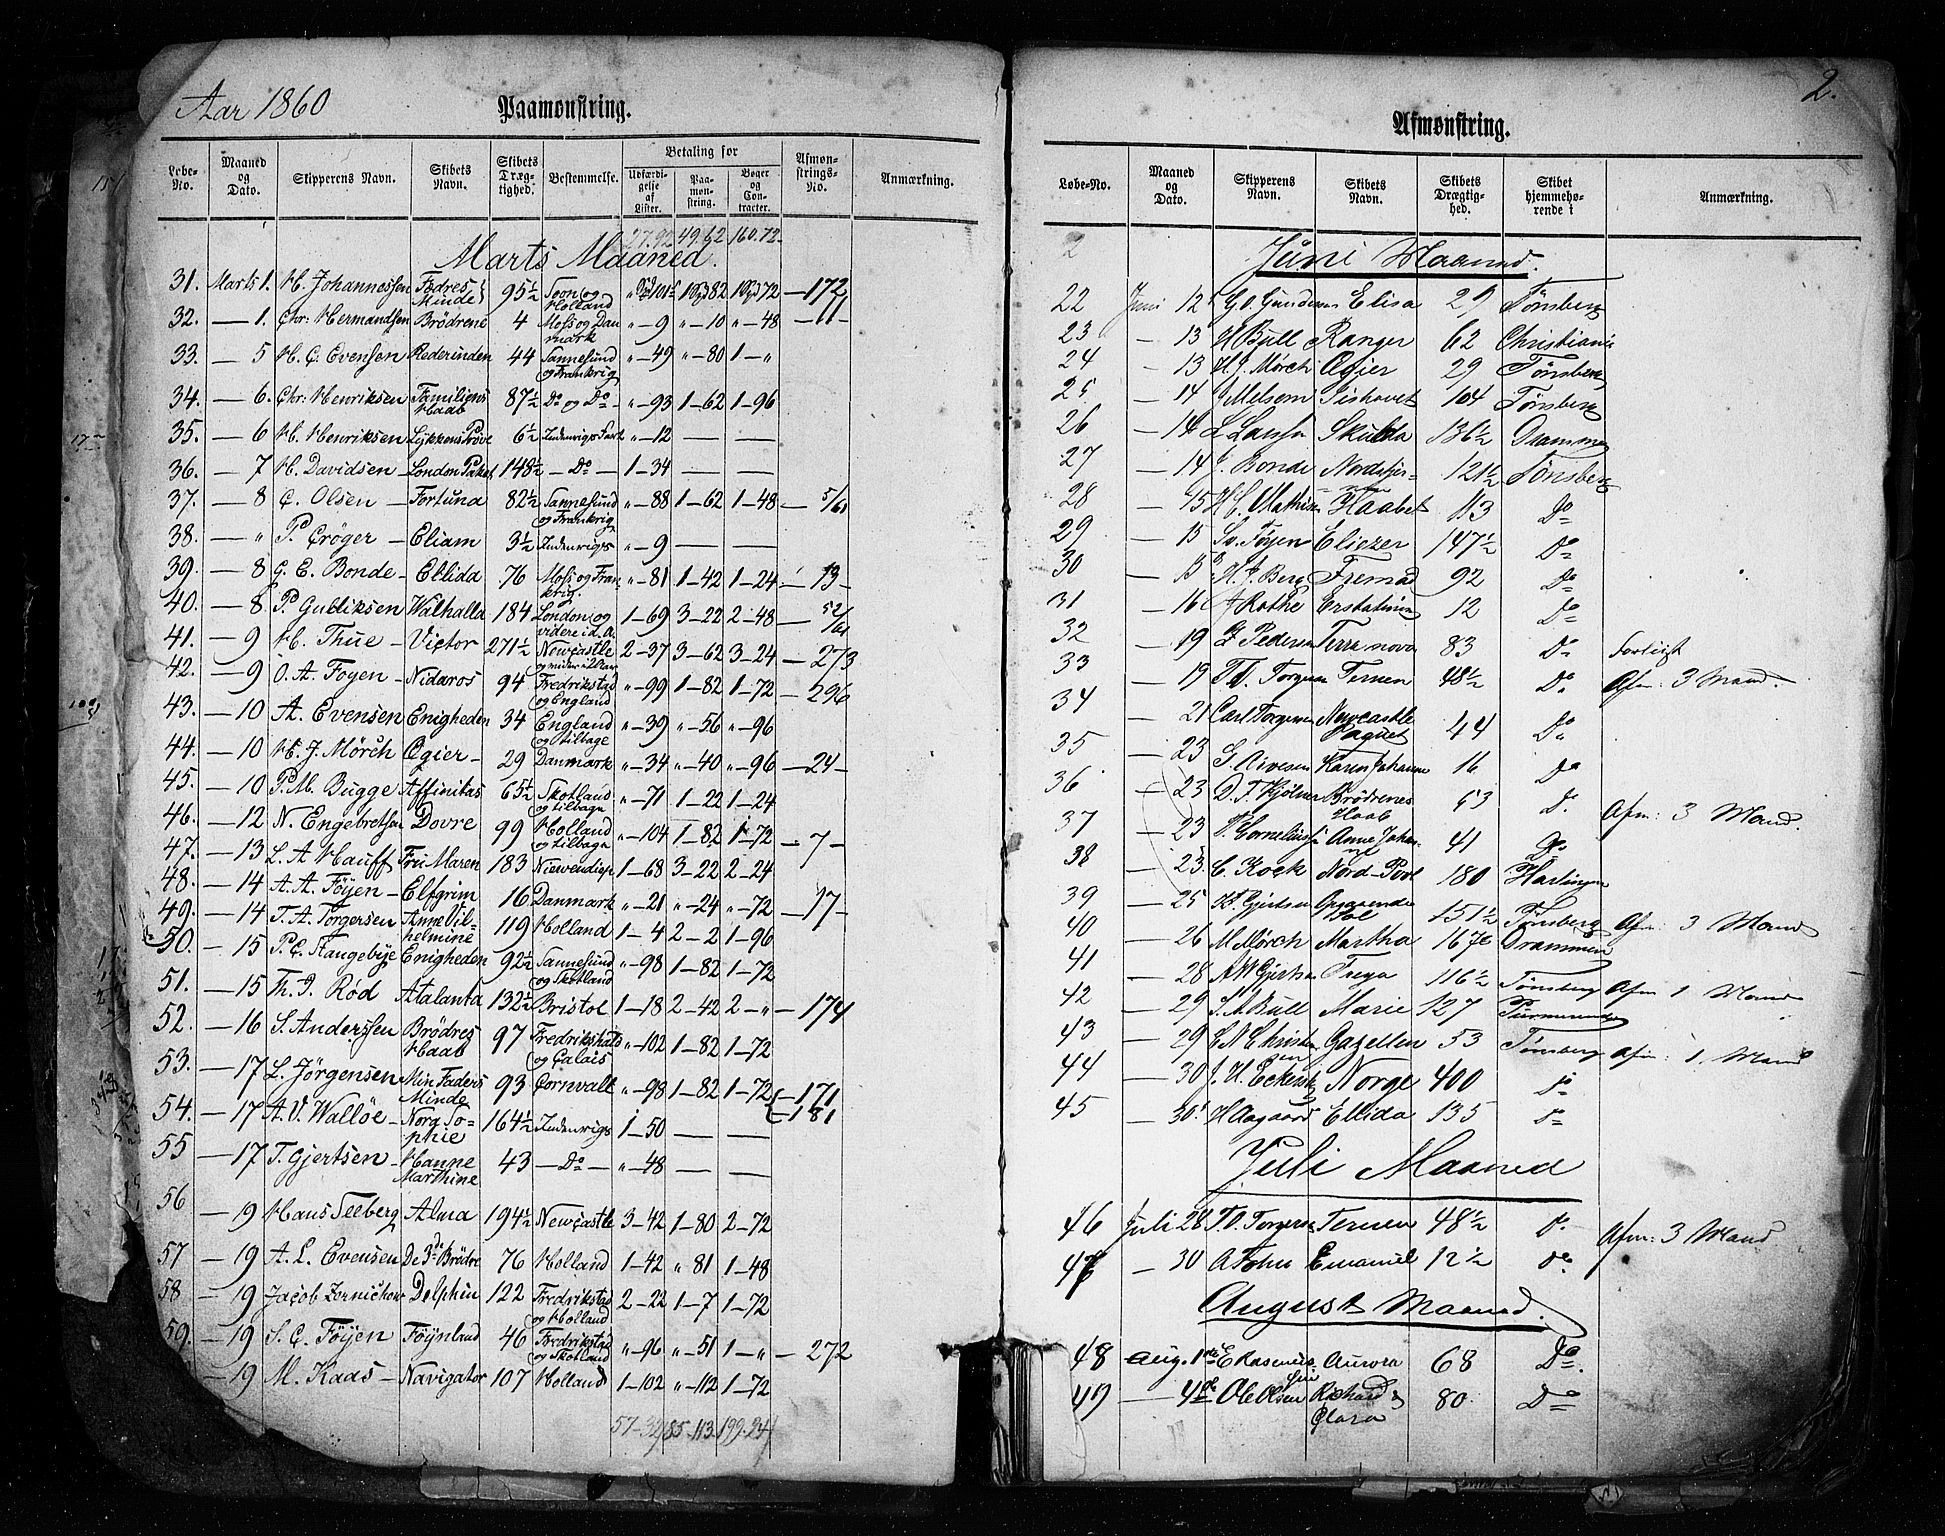 Aar 1860
Paamønstring.
Løbe-No. Maaned og Dato. Skipperens Navn. Skibets Navn. Skibets Drægtighed. Bestemmelse. Betaling for Udfærdigelse af Lister. Paamønstring. Bøger og Contracter. Afmønstrings-No. Anmærkning.
27.92 49.62 160.72
Marts Maaned.
31. Marts 1. H. Johannessen Fædres Minde 95½ Soon og Holland 101 1 82 1 72 — 172
32. — 1. Chr: Hermandsen Brödrene 4 Moss og Danmark " — 9 " — 10 " — 48 — 11 —
33. — 5 H. C. Evensen Rederinden 44 Sannesund og Frankrig " — 49 " — 80 1 — "
34. — 6. Chr: Henriksen Familiens Haab 87½ Do og Do " — 93 1 — 62 1 — 96
35. — 6 H. Henriksen Lykkens Pröve 6½ Indenrigs Fart " — 12 — —
36. — 7 H. Davidsen London Paket 148½ — Do — 1 — 34 — —
37. — 8 C. Olsen — Fortuna 82½ Sannesund og Frankrig " — 88 1 — 62 1 — 48 — 5/61
38. — " P. Cröger — Eliam 3½ Indenrigs " — 9 — —
39. — 8 G. E. Bonde — Ellida 76 Moss og Frankrig. " — 81 1 — 42 1 — 24 — 13 —
40. — 8 P. Gulliksen Walhalla 184 London og videre i d. A. 1 — 69 3 — 22 2 — 48 — 52/61
41. — 9 H. Thue — Victor 271½ Newcastle 2 — 37 3 — 62 3 — 24 — 273
42. — 9 O. A. Foyen — Nidaros 94 Fredrikstad og England " — 99 1 — 82 1 — 72 — 296
43. — 10 A. Evensen Enigheden 34 England og tilbage " — 39 " — 56 " — 96
44. — 10 H. J. Mörch Ægier — 29 Danmark " — 34 " — 40 " — 96 — 24 —
45. — 10 P. M. Bugge Affinitas 65½ Skotland og tilbage " — 71 1 — 22 1 — 24
46. — 12 N. Engebretsen Dovre 99 Holland og tilbage " — 104 1 — 82 1 — 72 — 7 —
47. — 13 L. A. Hauff Fru Maren 183 Niewendiep 1 — 68 3 — 22 2 — 24
48. — 14 A. A. Föyen — Elfgrim 16 Danmark " — 21 " — 24 " — 72 — 17 —
49. — 14 T. A. Torgersen Anne Vilhelmine 119 Holland 1 — 4 2 — 2 1 — 96
50. — 15 P. C. Stangebye Enigheden 92½ Sannesund og Skotland " — 98 1 — 82 1 — 72
51. — 15 Th. J. Röd Atalanta 132½ Bristol 1 — 18 2 — 42 2 — " — 174
52. — 16 S. Anderssen Brödres Haab 97 Fredrikshald og Calais " — 102 1 — 82 1 — 72
53. — 17 L. Jörgensen Min Faders Minde 93 Cornvall " — 98 1 — 82 1 — 72 — 171 — 181
54. — 17 A. V. Wallöe — Norg Sophie 164½ Indenrigs 1 — 50 — —
55 — 17 T. Gjertsen — Hanne Marthine 43 — Do — " — 48 — —
56 — 19 Hans Seeberg Alma 194½ Newcastle 3 — 42 1 — 80 2 — 72
57 — 19 A. L. Evensen De 3de Brödre 76 Holland 1 — 42 " 81 1 — 48
58 — 19 Jacob Zernichow Delphin 122 Fredrikstad og Holland 2 — 22 1 — 7 1 — 72
59. — 19 S. C. Föyen Föynland 46 Fredrikstad og Skotland " — 96 " — 51 1 — " — 272
— 19 M. Kaas — Navigator 107 Holland 1 — 102 " — 112 1 — 72
57 — 32 85 — 113 199.24
2.
Afmønstring.
Løbe-No. Maaned og Dato. Skipperens Navn. Skibets Navn. Skibets Drægtighed. Skibet hjemmehørende i Anmærkning.
2 Juni Maaned.
22 Juni 12 G. O. Gundersen Elisa 29 Tønsberg
23 — 13 H Bull Ranger 62 Christiania
24 — 13 H. J. Mörch Ægier 29 Tønsberg
25 — 14 J Melsom 104 Tønsberg
26 — 14 L Larsen Skulda 136½ Drammen
27 — 14 J. Bonde 121½ Tønsberg
28 — 15 H C. Mathisen Haabet 113 Do
29 — 15 Sv. Foyen Eliezer 147½ Do
30 — 15 H. J. Berg Fremad 92 Do
31 — 16 J Rothe 12 Do
32 — 19 Pedersen Terra nova 83 Do Forliist
33 — 19 T. O. Torgersen Ternen 48½ Do Afm: 3 Mand.
34 — 21 Carl Torgersen Newcastle Paquet 44 Do
35 — 23 Karen Johanne 16 Do
36 — 23 D. T. Hjölner Brödrenes Haab 53 Do Afm: 3 Mand.
37 — 23 Cornelius Anne Johanne 41 Do
38 — 23. C. Kock Nord-Pool 180 Harlingen
39 — 25 H. Gjertsen Opgaaende Sol 151½ Tønsberg Afm: 3 Mand
40 — 26 M. Mörch Martha 167 Drammen
41 — 28 A W Gjertsen Freya 116½ Tønsberg Afm 1 Mand
42 — 29 S. A. Bull Marie 127 Purmerende
43 — 29 C N Christensen Gazellen 53 Tønsberg Afm: 1. Mand
44 — 30 J. H. Norge 400 Do
45 — 30. H Aagaard Ellida 135 Do
Juli Maaned
46 Juli 28 T. O. Torgersen Ternen 48½ Do Afm: 3 Mand
47 — 30 A Emanuel 12½ Do
August Maaned.
48 Aug. 1ste E Rasmussen Aurora 68 Do
49 — 4de Ole Olsen Richard & Clara 80 Do